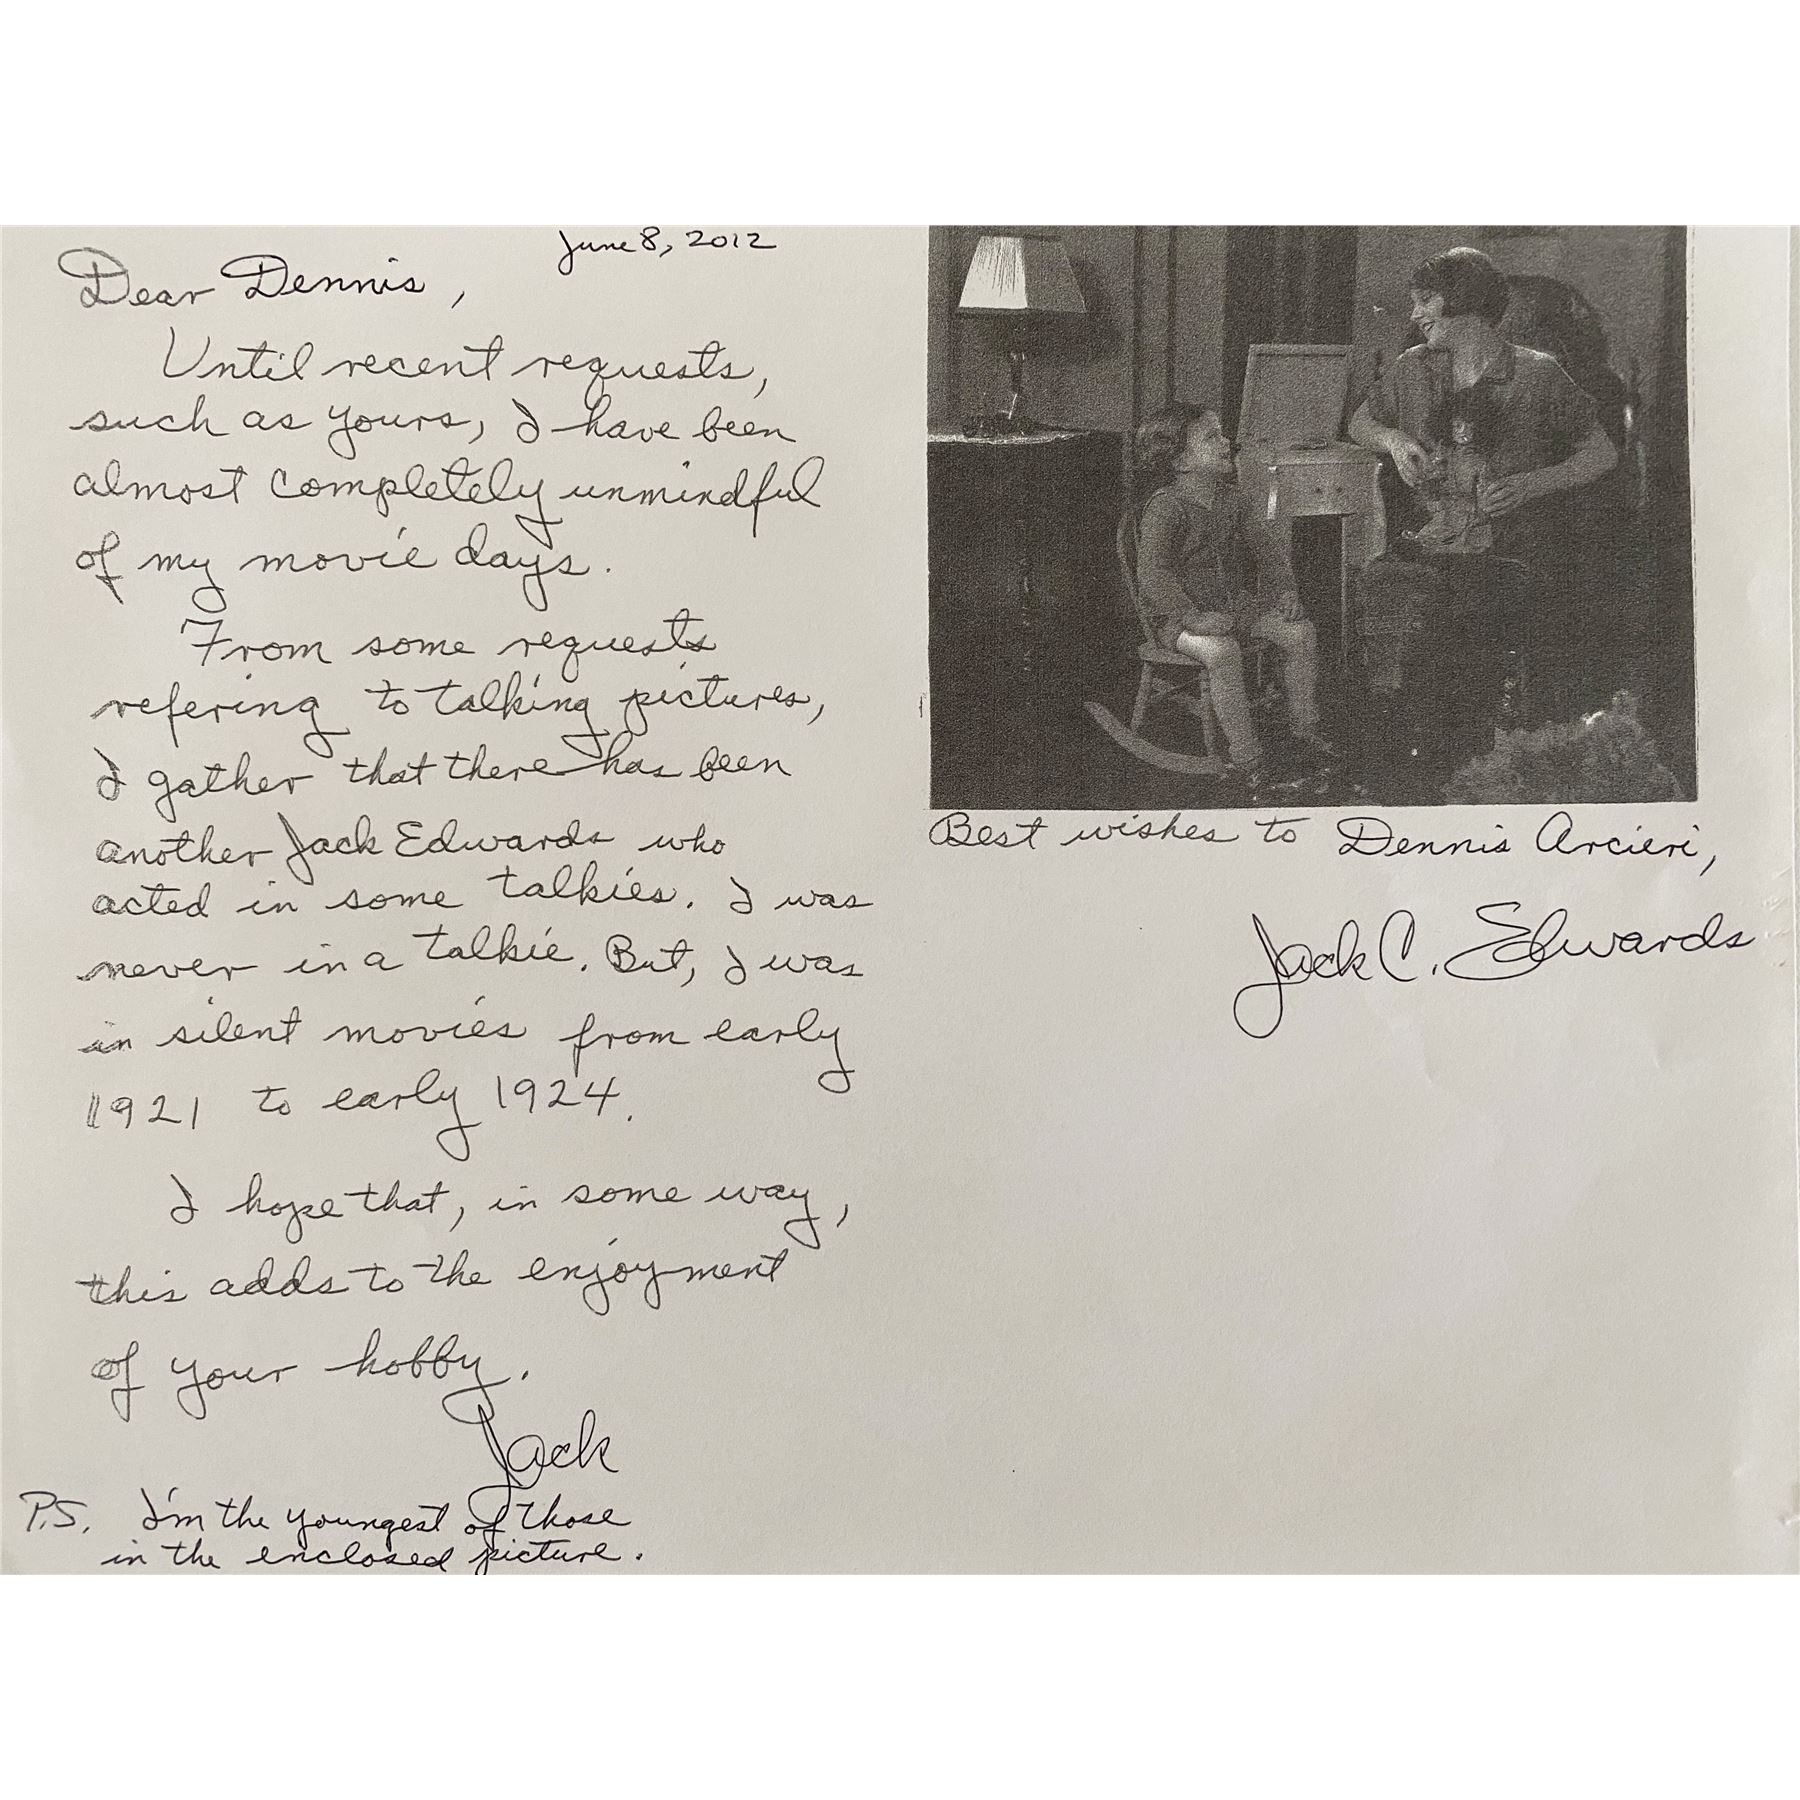 June 8, 2012
Dear Dennis,
Until recent requests,
such as yours, I have been
almost completely unmindful
of my movie days.
From some requests
refering to talking pictures,
I gather that there has been
another Jack Edwards who
acted in some talkies. I was
never in a talkie. But, I was
in silent movies from early
1921 to early 1924.
I hope that, in some way,
this adds to the enjoyment
of your hobby.
Jack
P.S. I'm the youngest of those
in the enclosed picture.
Best wishes to Dennis Arcieri,
Jack C. Edwards